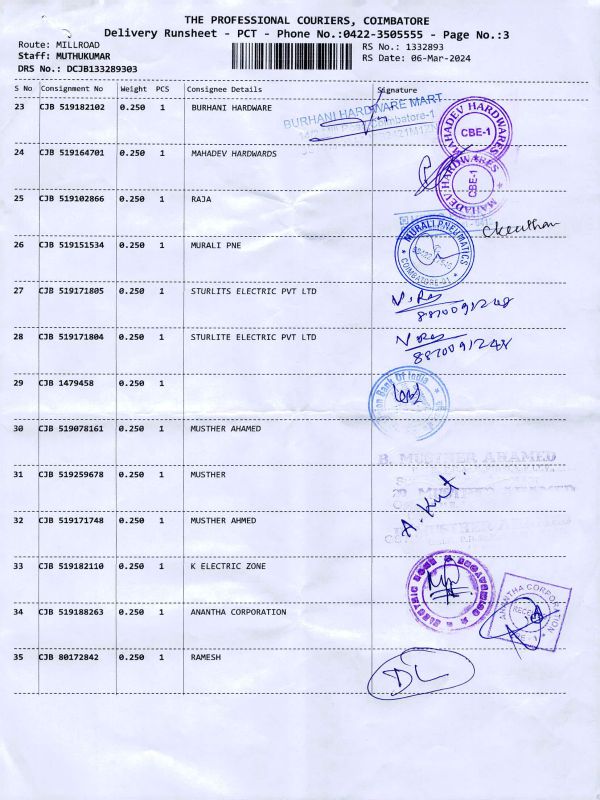 THE PROFESSIONAL COURIERS, COIMBATORE
Delivery Runsheet - PCT - Phone No.:0422-3505555 - Page No.:3
Route: MILLROAD RS No.: 1332893
Staff: MUTHUKUMAR RS Date: 06-Mar-2024
DRS No.: DCJB133289303
S No Consignment No Weight PCS Consignee Details Signature
23 CJB 519182102 0.250 1 BURHANI HARDWARE
BURHANI HARDWARE MART
MAHADEV HARDWARES CBE-1
24 CJB 519164701 0.250 1 MAHADEV HARDWARDS
MAHADEV HARDWARES CBE-1
25 CJB 519102866 0.250 1 RAJA
26 CJB 519151534 0.250 1 MURALI PNE
MURALI PNEUMATICS COIMBATORE-01
27 CJB 519171805 0.250 1 STURLITS ELECTRIC PVT LTD
28 CJB 519171804 0.250 1 STURLITE ELECTRIC PVT LTD
29 CJB 1479458 0.250 1
Bank Of India
30 CJB 519078161 0.250 1 MUSTHER AHAMED
B. MUSTHER AHAMED
31 CJB 519259678 0.250 1 MUSTHER
MUSTHER AHAMED
32 CJB 519171748 0.250 1 MUSTHER AHMED
MUSTHER AHAMED
33 CJB 519182110 0.250 1 K ELECTRIC ZONE
34 CJB 519188263 0.250 1 ANANTHA CORPORATION
ANANTHA CORPORATION
35 CJB 80172842 0.250 1 RAMESH